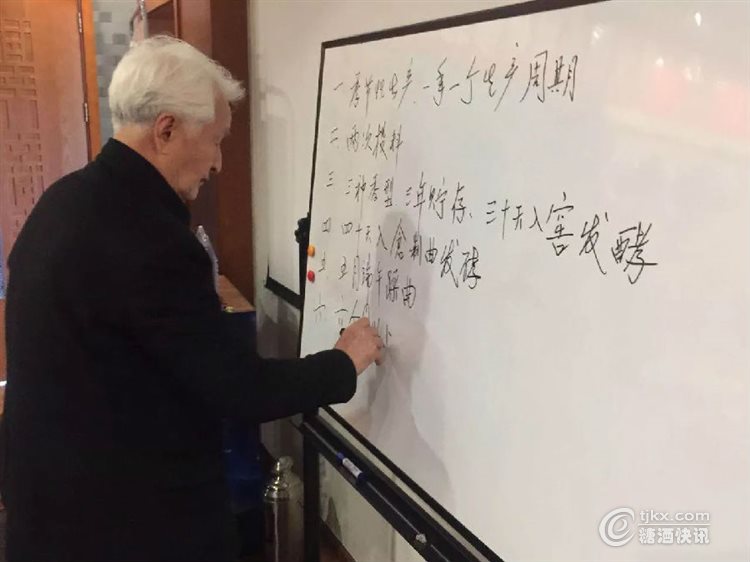 一 季节性生产、一年一个生产周期
二 两次投料
三 三种香型 三年贮存、三十天入窖发酵
四 四十天入仓制曲发酵
五 五月端午踩曲
六 六个月
tjkx.com
糖酒快讯